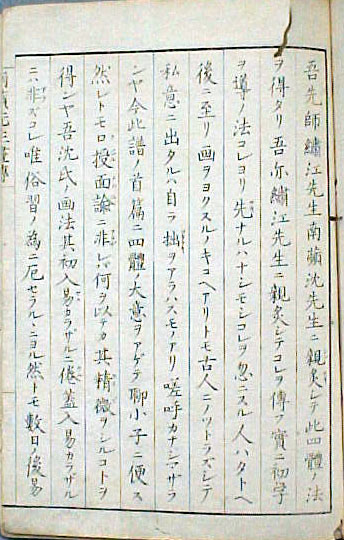 吾先師繡江先生南蘋沈先生ニ親炙シテ此四體ノ法
ヲ得タリ吾亦繡江先生ニ親炙シテコレヲ傳フ實ニ初学
ヲ導ノ法コレヨリ先ナルハナシモシコレヲ忽ニスル人ハタトヘ
後ニ至リ画ヲヨクスルノキコヘアリトモ古人ニノットラズシテ
私意ニ出タルハ自ラ拙ヲアラハスモノアリ嗟呼カナシマザラ
ンヤ今此譜ノ首篇ニ四體ノ大意ヲアゲテ聊小子ニ便ス
然レトモロ授面諭ニ非レハ何ヲ以テカ其精微ヲシルコトヲ
得ンヤ吾沈氏ノ画法其初入易カラザルニ倦蓋入易カラザル
ニハ非ズコレ唯俗習ノ為ニ厄セラルヽニヨル然トモ數日ノ後易